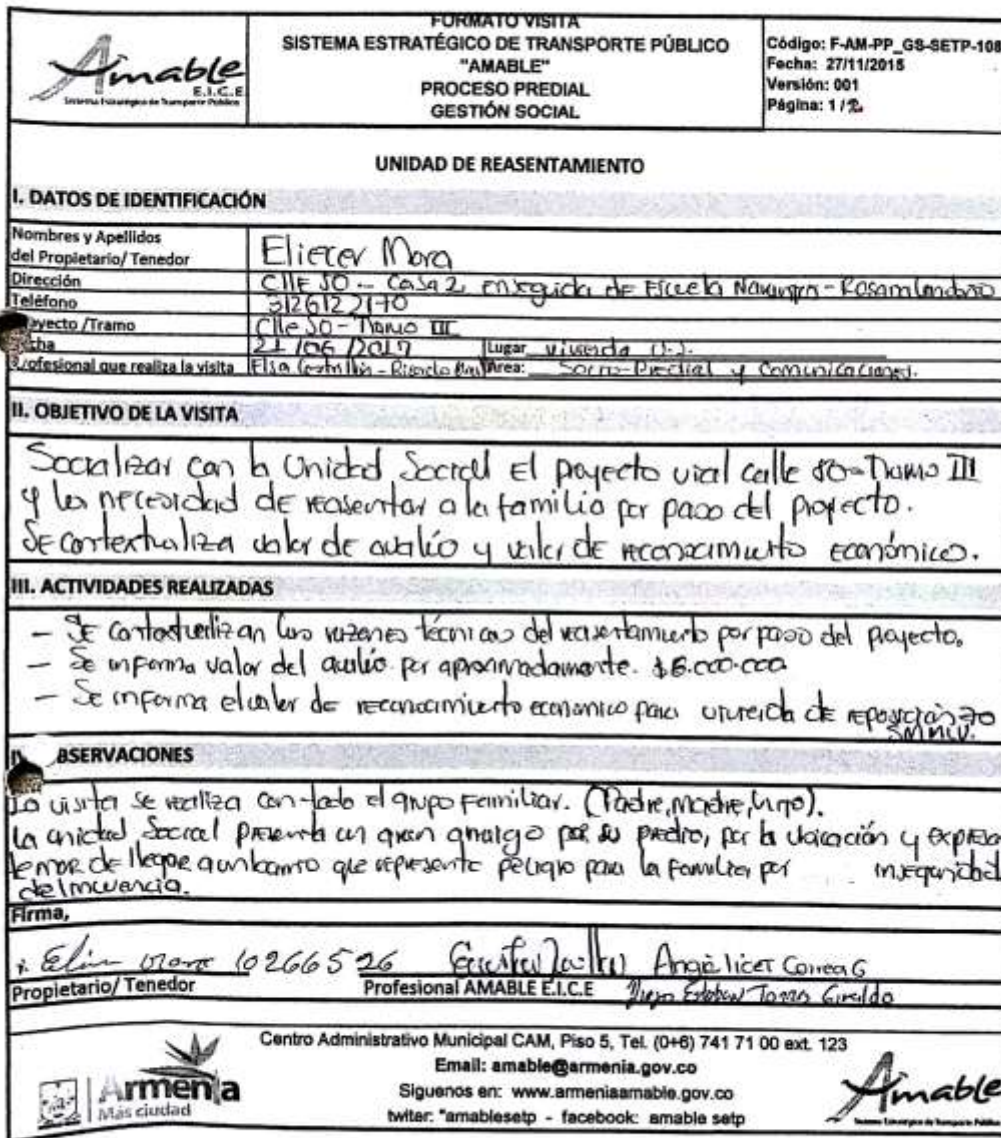 Amable
E.I.C.E
Sistema Estratégico de Transporte Público
FORMATO VISITA
SISTEMA ESTRATÉGICO DE TRANSPORTE PÚBLICO
"AMABLE"
PROCESO PREDIAL
GESTIÓN SOCIAL
Código: F-AM-PP_GS-SETP-108
Fecha: 27/11/2015
Versión: 001
Página: 1 / 2
UNIDAD DE REASENTAMIENTO
I. DATOS DE IDENTIFICACIÓN
Nombres y Apellidos
del Propietario/ Tenedor Eliecer Mora
Dirección Clle 50 - Casa 2 enseguida de Escuela
Teléfono 3126122170
oyecto /Tramo Clle 50 - Tramo III
cha 21/06/2017 Lugar vivienda U.S.
rofesional que realiza la visita Elsa Área: Socio-Predial y Comunicaciones.
II. OBJETIVO DE LA VISITA
Socializar con la Unidad Social El proyecto vial calle 50-Tramo III
y la necesidad de reasentar a la familia por paso del proyecto.
Se contextualiza valor de avalúo y valor de reconocimiento económico.
III. ACTIVIDADES REALIZADAS
- Se contextualizan las razones técnicas del reasentamiento por paso del proyecto.
- Se informa valor del avalúo por aproximadamente. $6.000.000
- Se informa el valor de reconocimiento económico para vivienda de reposición 70
SMMLV.
BSERVACIONES
La visita se realiza con todo el grupo Familiar. (Padre, madre, hijo).
La unidad Social presenta un gran arraigo por su predio, por la ubicación y expresa
temor de llegar a un barrio que represente peligro para la familia por inseguridad
delincuencia.
Firma,
10266526 Angélica Correa G
Propietario/ Tenedor Profesional AMABLE E.I.C.E Diego Esteban Torres Giraldo
Armenia
Más ciudad
Centro Administrativo Municipal CAM, Piso 5, Tel. (0+6) 741 71 00 ext. 123
Email: amable@armenia.gov.co
Siguenos en: www.armeniaamable.gov.co
twiter: "amablesetp - facebook: amable setp
Amable
Sistema Estratégico de Transporte Público